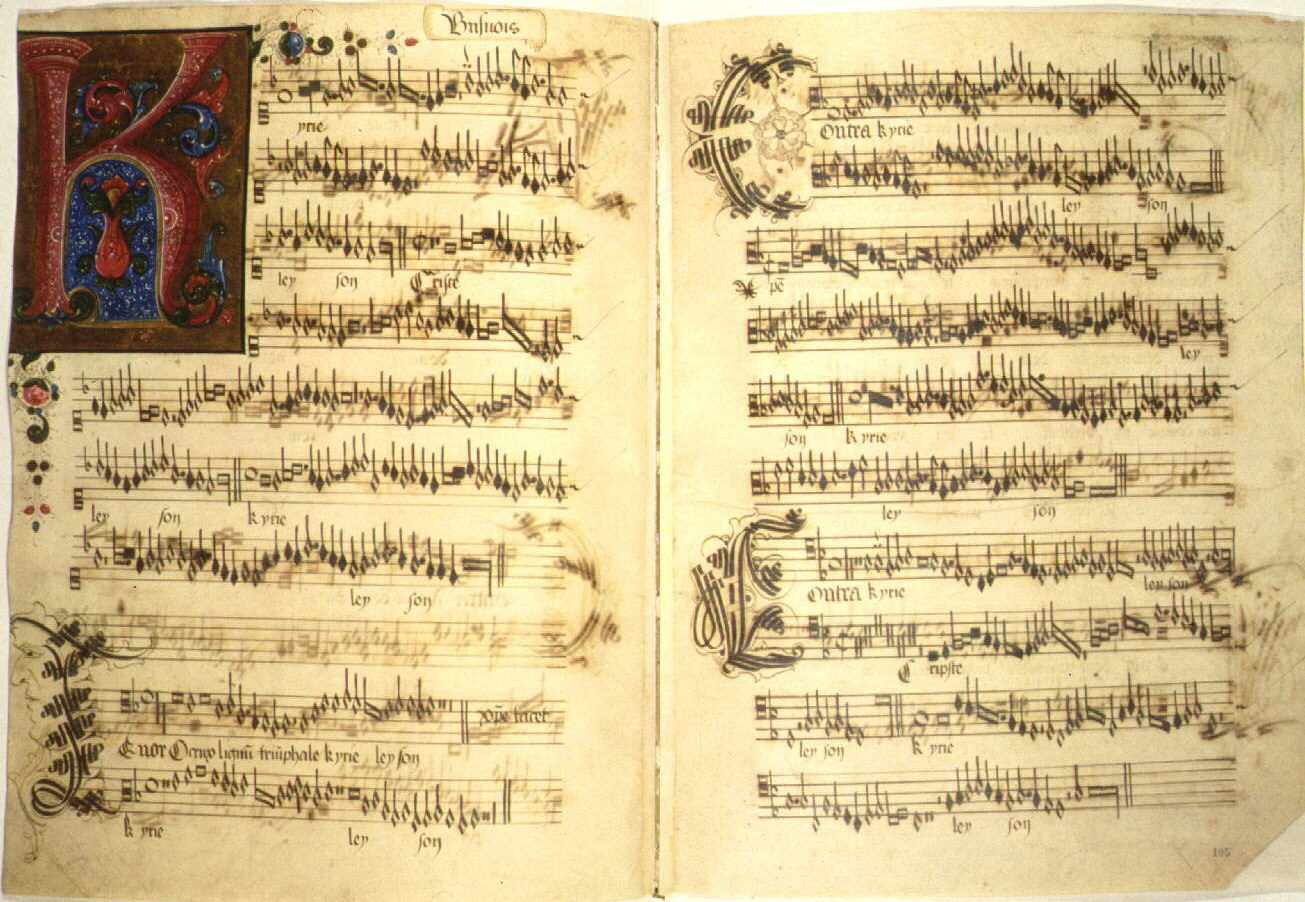 Busnois
K yrie
ley son Cristẽ
ley son kyrie
ley son
Tenor O crux lignũ triũphale kyrie ley son xp̃e tacet
k yrie ley son
Contra kyrie
ley son
Xp̃e
ley
son kyrie
ley son
Contra kyrie ley son
Cripste
ley son k yrie
ley son
105